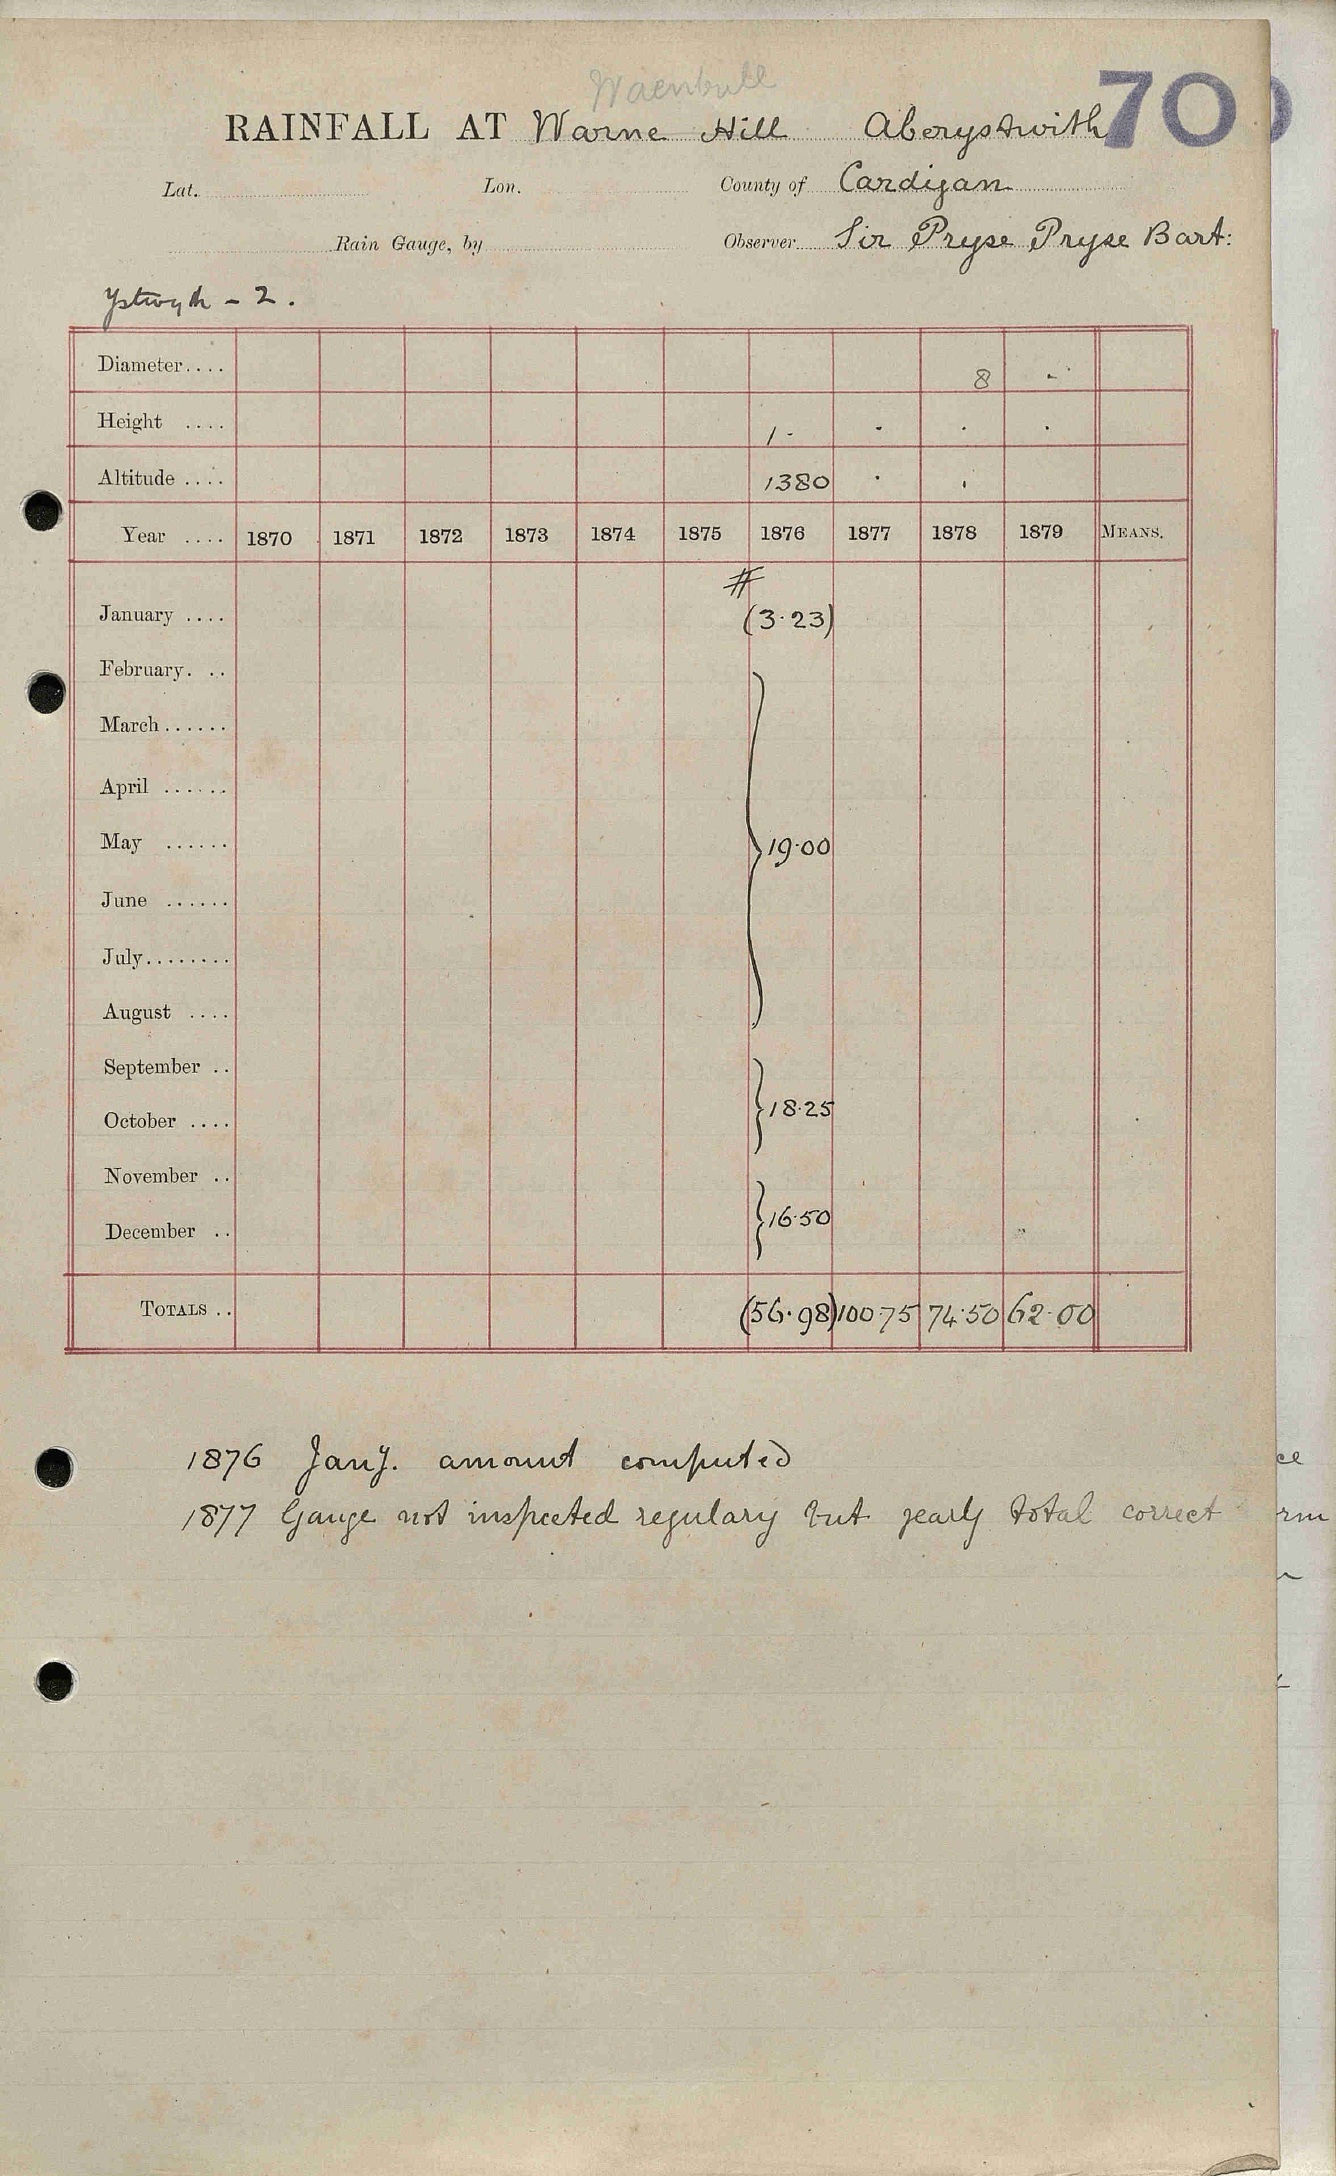 Waenbull
70
RAINFALL AT Warne Hill Aberystwith
Lat. Lon. County of Cardigan
Rain Gauge, by Observer Sir Pryse Pryse Bart:
Ystwyth - 2.
Diameter.... 8 -
Height .... 1 - . . .
Altitude .... 1380 . .
Year .... 1870 1871 1872 1873 1874 1875 1876 1877 1878 1879 MEANS.
#
January .... (3.23)
February. ..
March......
April ......
May ...... } 19.00
June ......
July........
August ....
September ..
October .... } 18.25
November ..
December .. } 16.50
TOTALS .. (56.98) 100.75 74.50 62.00
1876 Jany. amount computed
1877 Gauge not inspected regulary but yearly total correct